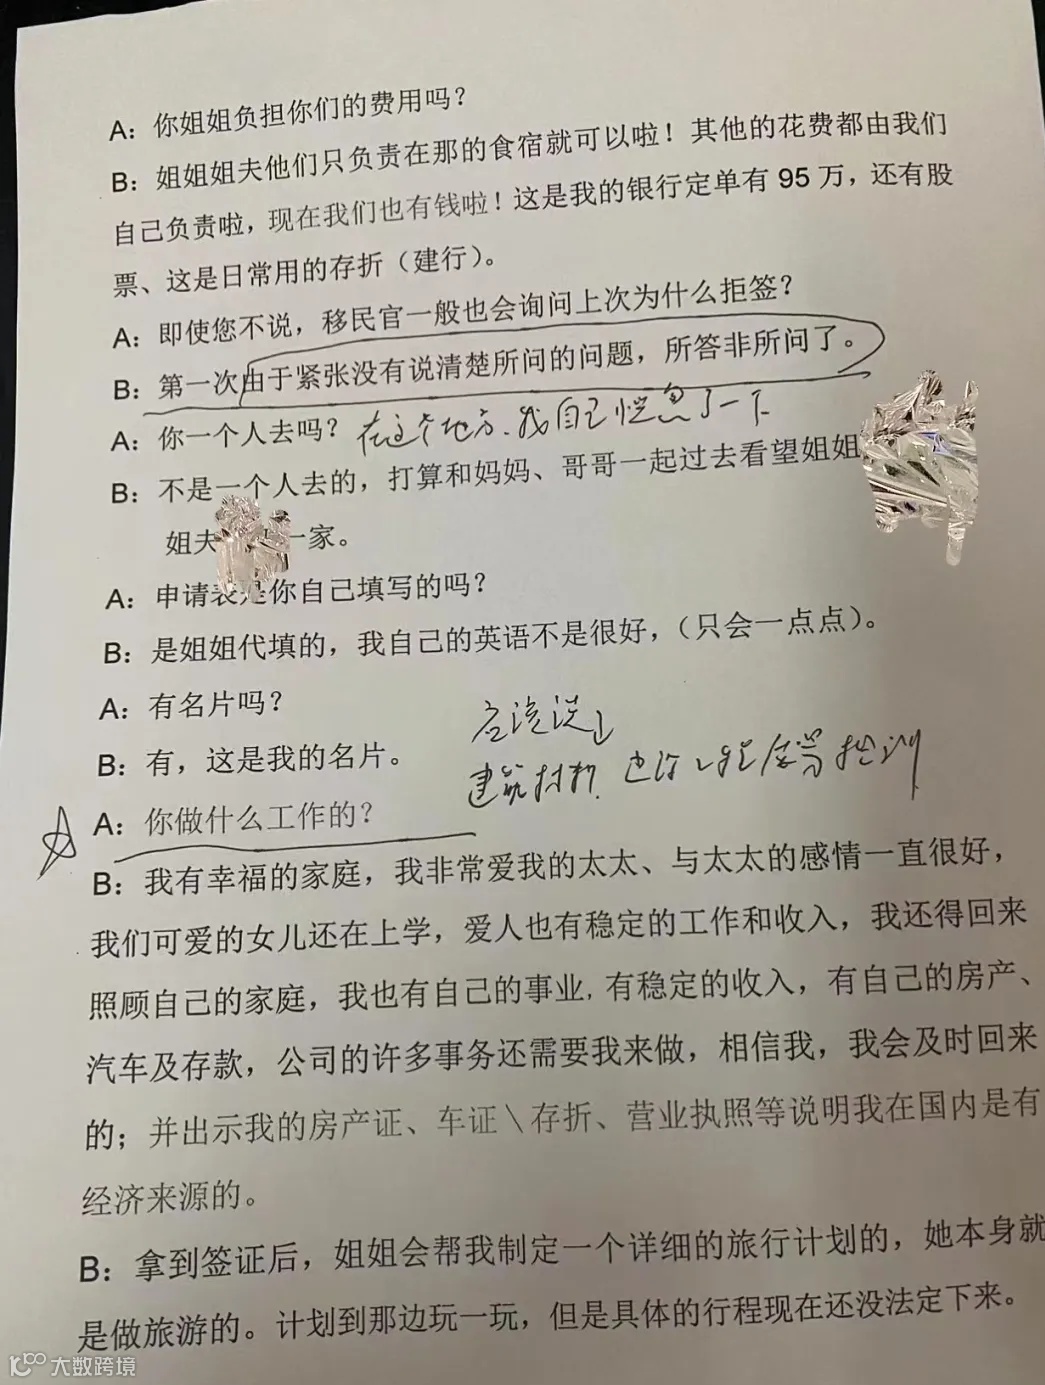 A：你姐姐负担你们的费用吗？
B：姐姐姐夫他们只负责在那的食宿就可以啦！其他的花费都由我们
自己负责啦，现在我们也有钱啦！这是我的银行定单有 95 万，还有股
票、这是日常用的存折（建行）。
A：即使您不说，移民官一般也会询问上次为什么拒签？
B：第一次由于紧张没有说清楚所问的问题，所答非所问了。
A：你一个人去吗？ 在这个地方、我自己恍惚了一下
B：不是一个人去的，打算和妈妈、哥哥一起过去看望姐姐
姐夫 一家。
A：申请表是你自己填写的吗？
B：是姐姐代填的，我自己的英语不是很好，（只会一点点）。
A：有名片吗？
B：有，这是我的名片。
建筑材料
培训
A：你做什么工作的？
B：我有幸福的家庭，我非常爱我的太太、与太太的感情一直很好，
我们可爱的女儿还在上学，爱人也有稳定的工作和收入，我还得回来
照顾自己的家庭，我也有自己的事业, 有稳定的收入，有自己的房产、
汽车及存款，公司的许多事务还需要我来做，相信我，我会及时回来
的；并出示我的房产证、车证\存折、营业执照等说明我在国内是有
经济来源的。
B：拿到签证后，姐姐会帮我制定一个详细的旅行计划的，她本身就
是做旅游的。计划到那边玩一玩，但是具体的行程现在还没法定下来。
大数跨境